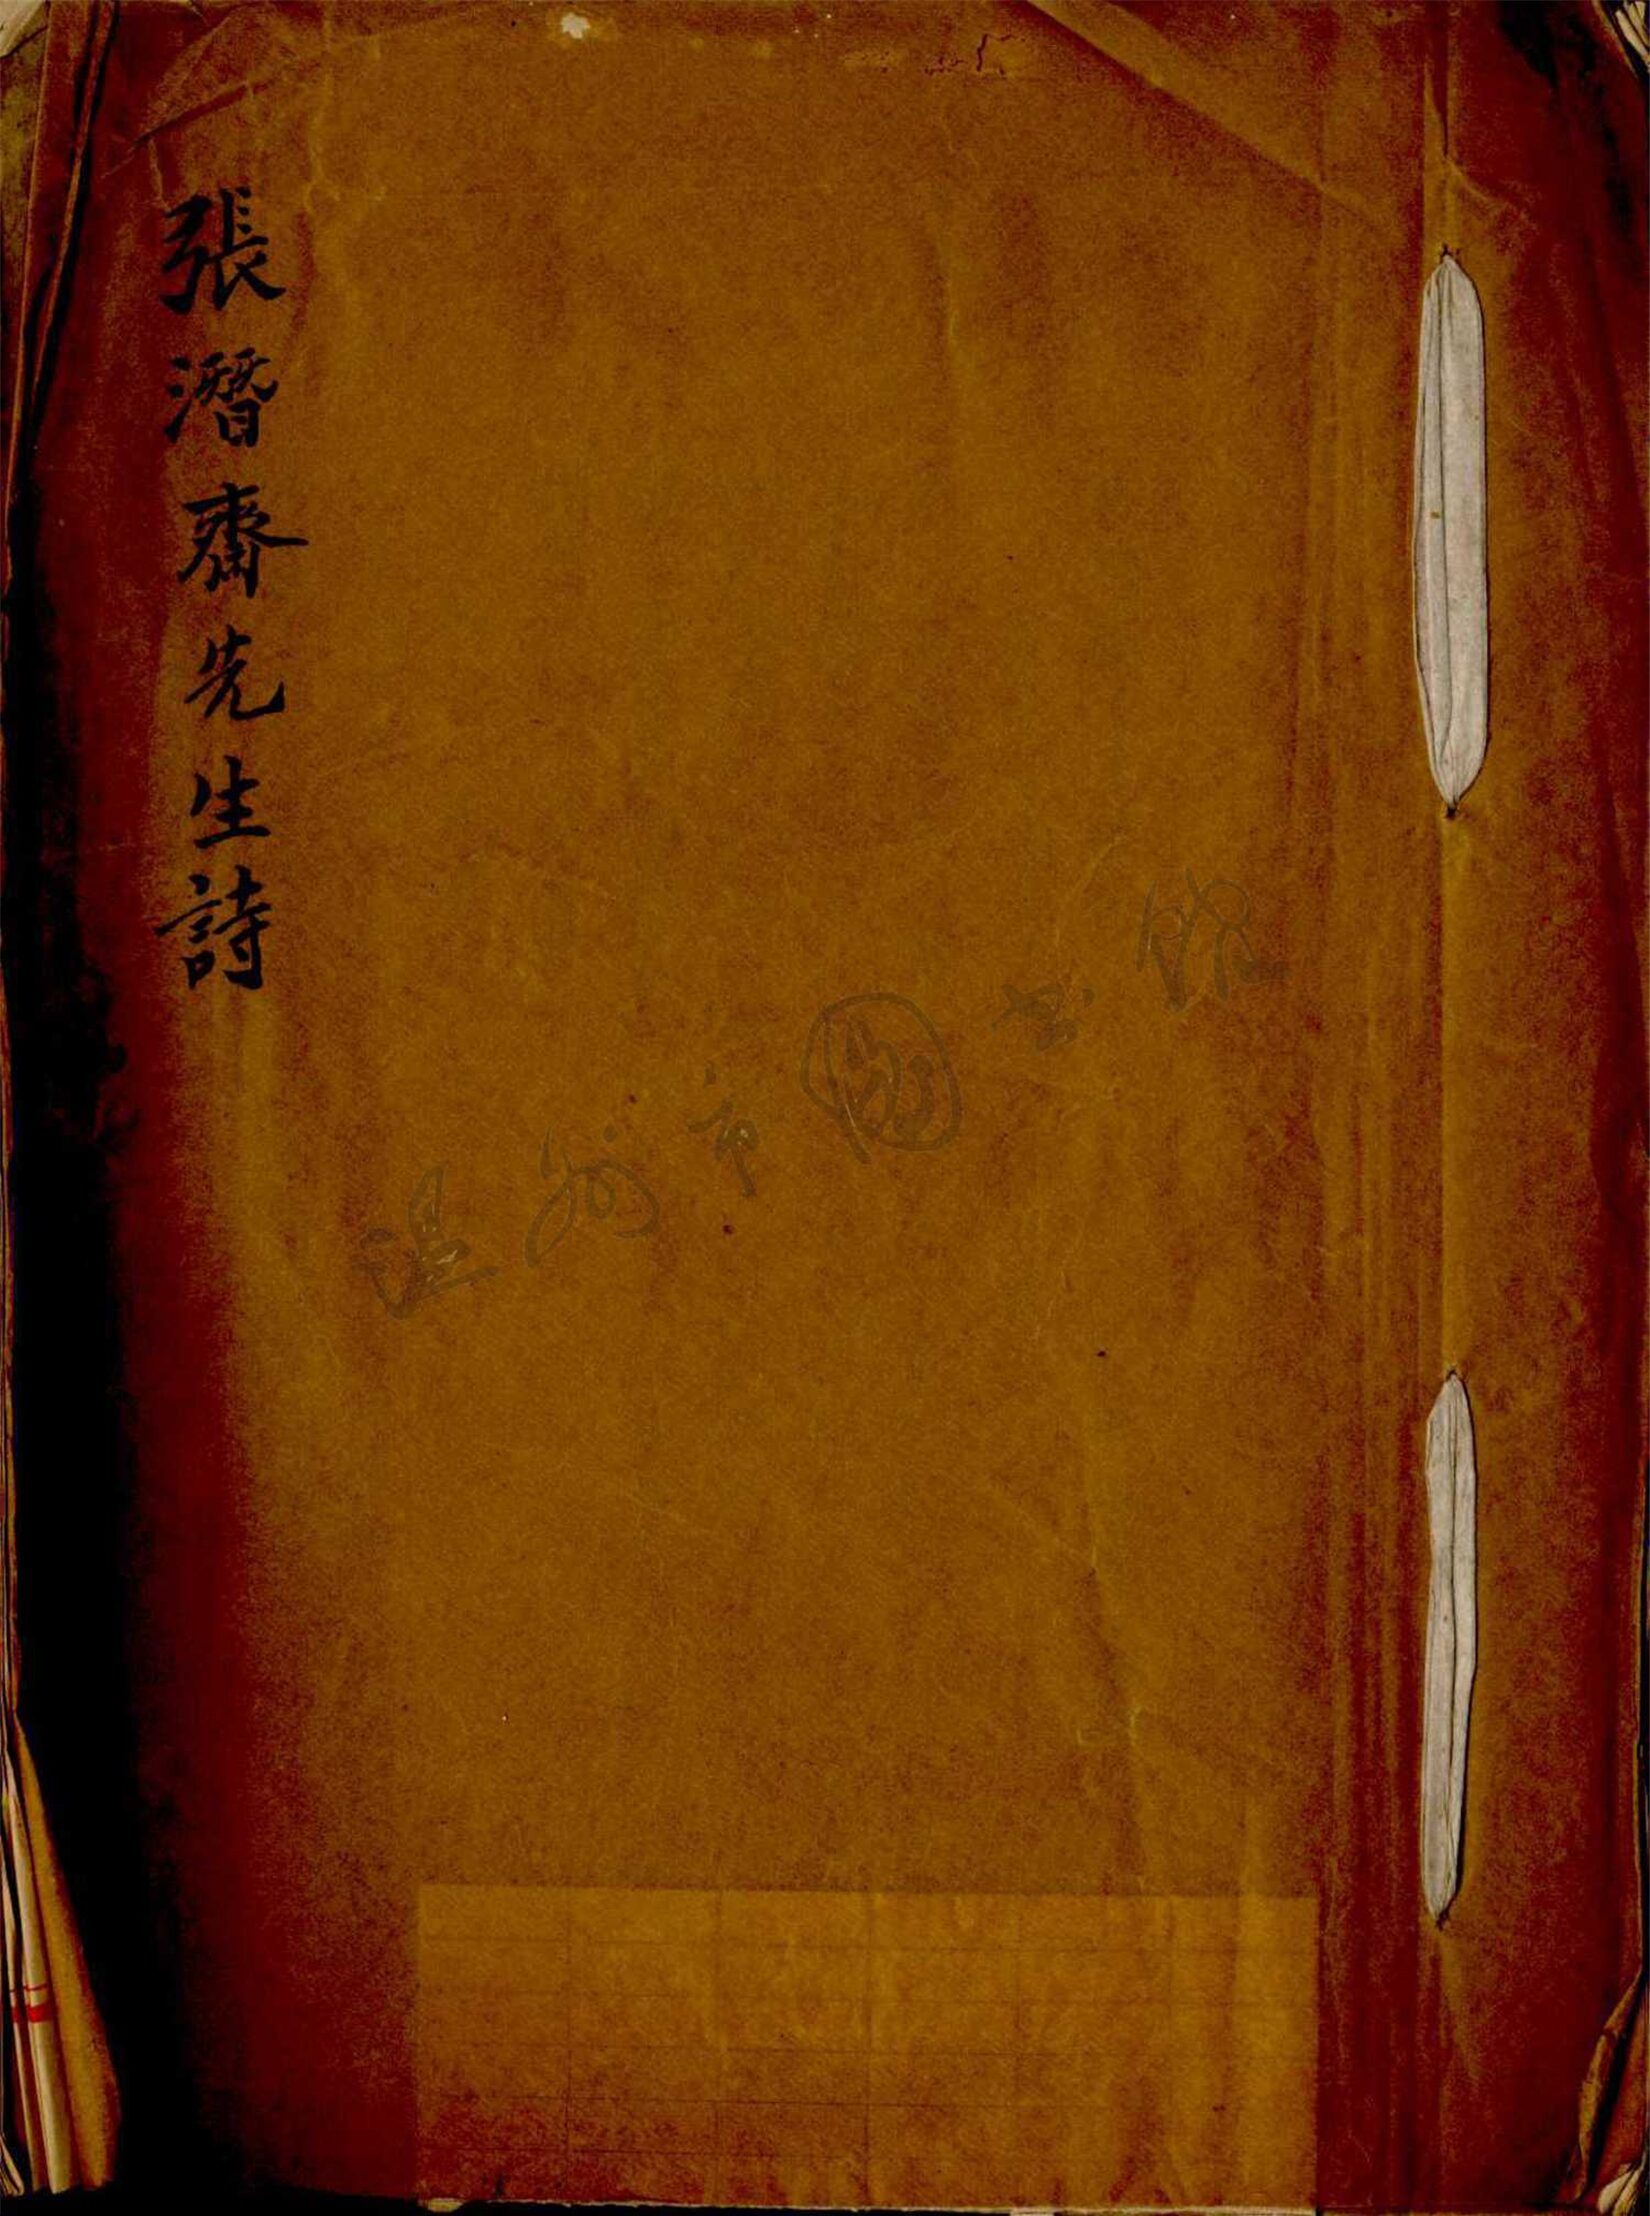 張潛齋先生詩
温州市圖書館